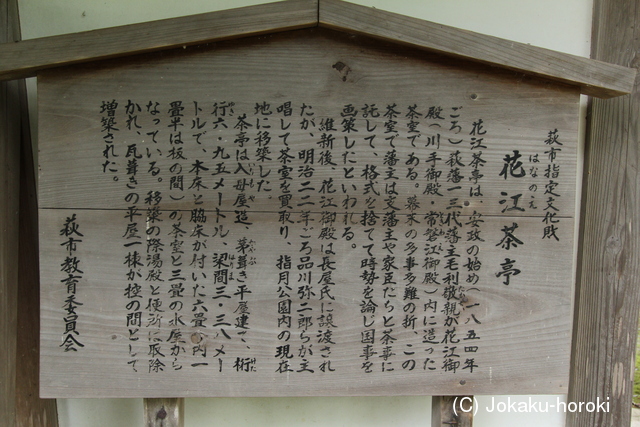 萩市指定文化財
花江茶亭
はなのえ
花江茶亭は、安政の始め（一八五四年
ごろ）萩藩一三代藩主毛利敬親が花江御
殿（川手御殿・常盤江御殿）内に造った
茶室である。幕末の多事多難の折、この
茶室で藩主は支藩主や家臣たちと茶事に
託して、格式を捨てて時勢を論じ国事を
画策したといわれる。
維新後、花江御殿は長屋氏に譲渡され
たが、明治二二年ごろ品川弥二郎らが主
唱して茶室を買取り、指月公園内の現在
地に移築した。
茶亭は入母屋造、茅葺き平屋建で、桁
行六・九五メートル、梁間三・三八メー
トルで、本床と脇床が付いた六畳（内一
畳半は板の間）の茶室と三畳の水屋から
なっている。移築の際湯殿と便所は取除
かれ、瓦葺きの平屋一棟が控の間として
増築された。
萩市教育委員会
(C) Jokaku-horoki